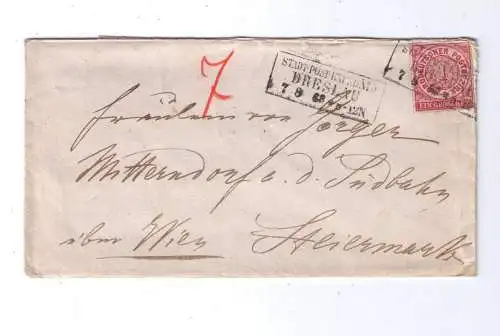 7
STADTPOST-EXP. No
BRESLAU
7 8 68 11-12N
NORDDEUTSCHER POSTBEZIRK
1
EIN GROSCHEN
7 8
Fräulein von Görger
Mitterndorf a. d. Südbahn
über Wien Steiermark